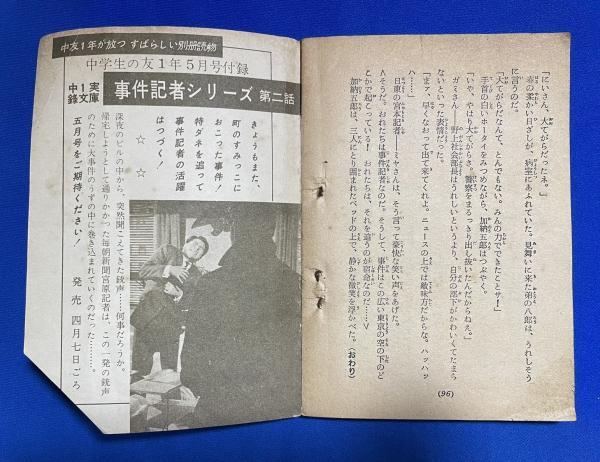 「にいさん、大てがらだったネ。」
春の夜かい日ざしが、病室にあふれていた。見舞いに来た弟の八郎は、うれしそう
に言うのだ。
「大てがらだなんて、とんでもない。みんの力でできたことサ！」
手首の白いホータイをみつめながら、加納五郎はつぶやく。
「いや、やはり大てがらさ。警察をまるっきり出し抜いたんだからねえ。」
ガミさん――野上社会部長はうれしいというより、自分の部下がかわいくてたまら
ないといった表情だった。
「まァ、早くなおって出て来てくれよ。ニュースの上では敵味方だからな。ハッハッ
ハ……」
日東の宮本記者――ミヤさんは、そう言って豪快な笑い声をあげた。
＜そうだ。おれたちは事件記者なのだ。そうして、事件はこの広い東京の空の下のど
こかで起こっている！　おれたちは、それを追うのが宿命なのだ……＞
加納五郎は、三人にとり囲まれたベッドの上で、静かな微笑を浮かべた。〈おわり〉
(96)
中友１年が放つ すばらしい別冊読物
中学生の友１年５月号付録
実録１文庫中
事件記者シリーズ 第二話
きょうもまた、
町のすみっこに
おこった事件！
特ダネを追って
事件記者の活躍
はつづく！
☆ ☆
深夜のビルの中から、突然聞こえてきた銃声……何事だろうか。
帰宅しようとして通りかかった毎朝新聞宮原記者は、この一発の銃声
のために大事件のうずの中に巻き込まれていくのだった……。
五月号をご期待ください！
発売 四月七日ごろ